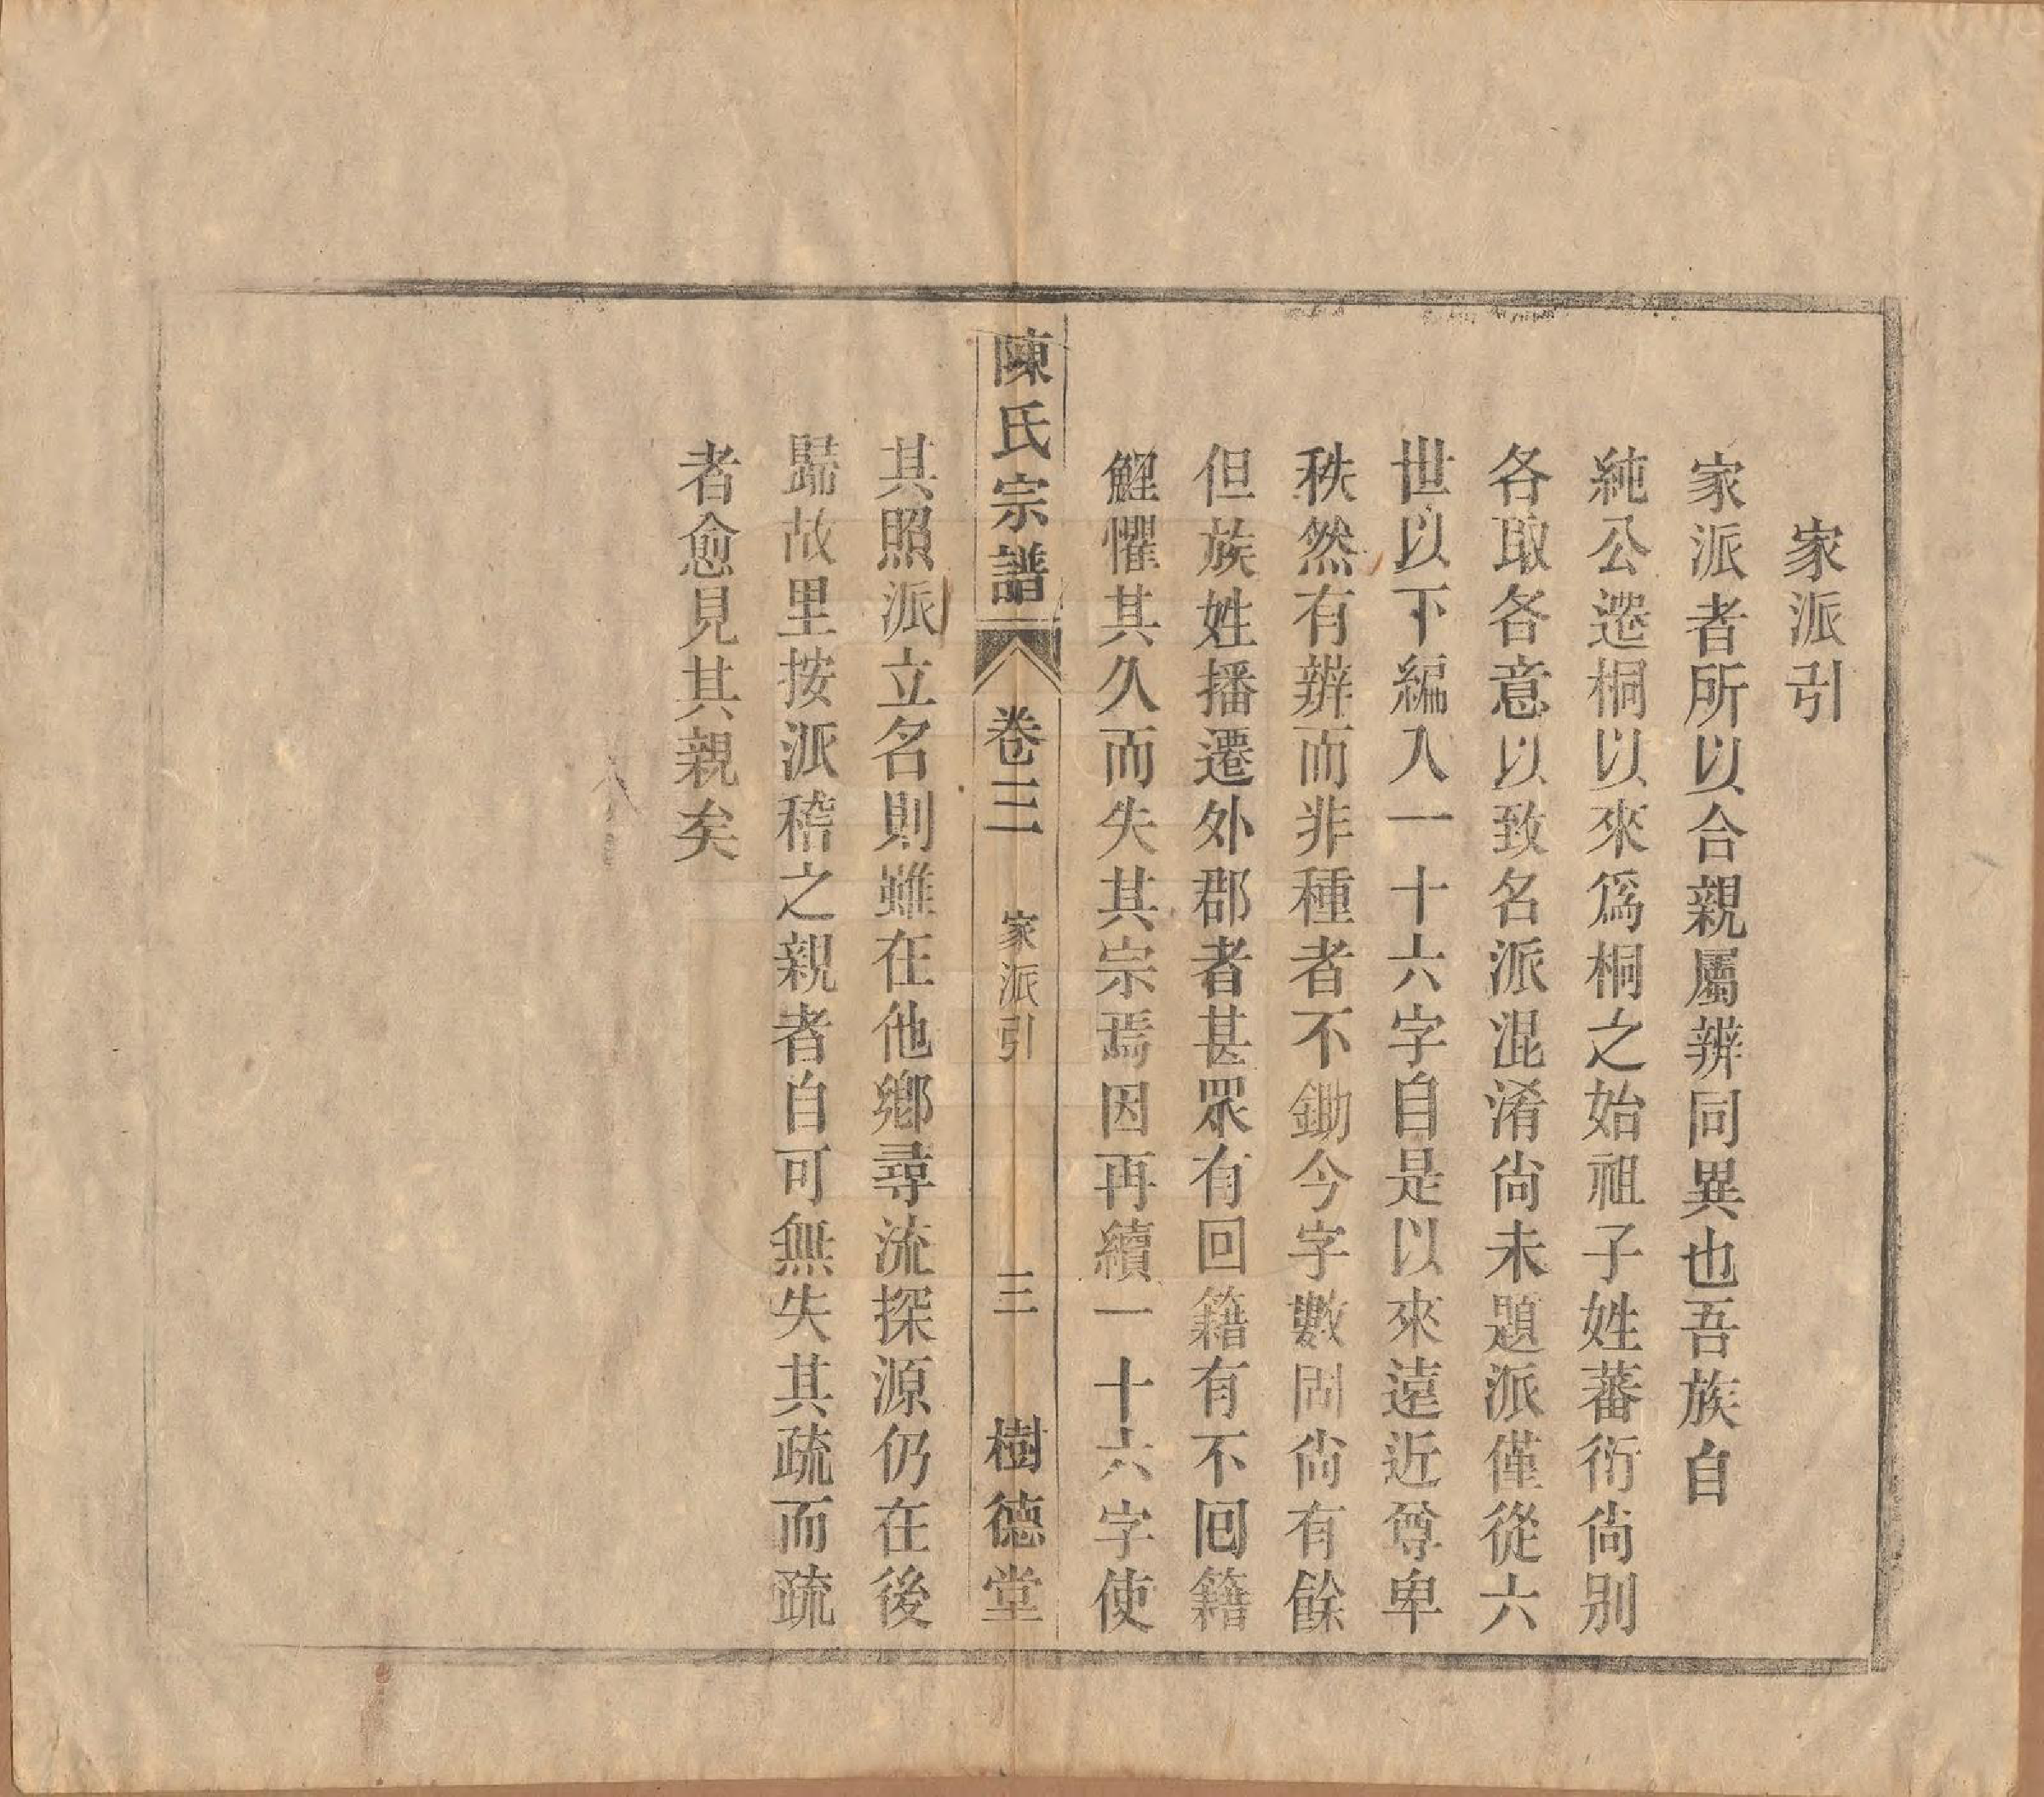 家派引
家派者所以合親屬辨同異也吾族自
純公遷桐以來爲桐之始祖子姓蕃衍尙別
各取各意以致名派混淆尙未題派僅從六
世以下編入一十六字自是以來遠近尊卑
秩然有辨而非種者不鋤今字數固尙有餘
但族姓播遷外郡者甚眾有回籍有不回籍
懼其久而失其宗焉因再續一十六字使
陳氏宗譜 卷三 家派引 三 樹德堂
其照派立名則雖在他鄉尋流探源仍在後
歸故里按派稽之親者自可無失其疏而疏
者愈見其親矣